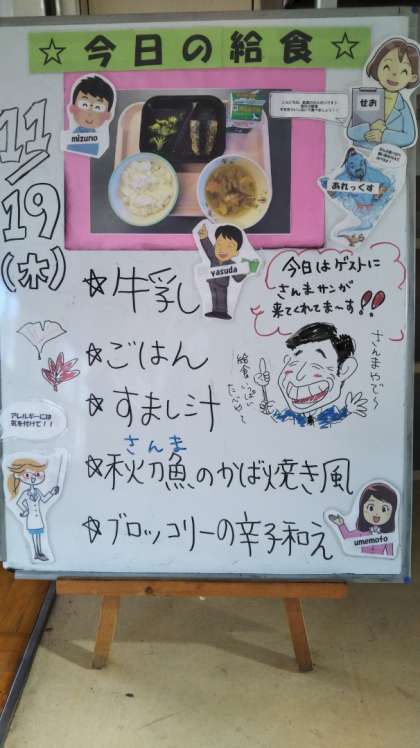 ☆今日の給食☆
11/19(木)
mizuno
せお
あれっくす
yasuda
今日はゲストに
さんまサンが
来てくれてま〜す!!
さんまやで〜
☆牛乳
☆ごはん
☆すまし汁
さんま
☆秋刀魚のかば焼き風
☆ブロッコリーの辛子和え
アレルギーには
気を付けて!!
umemoto